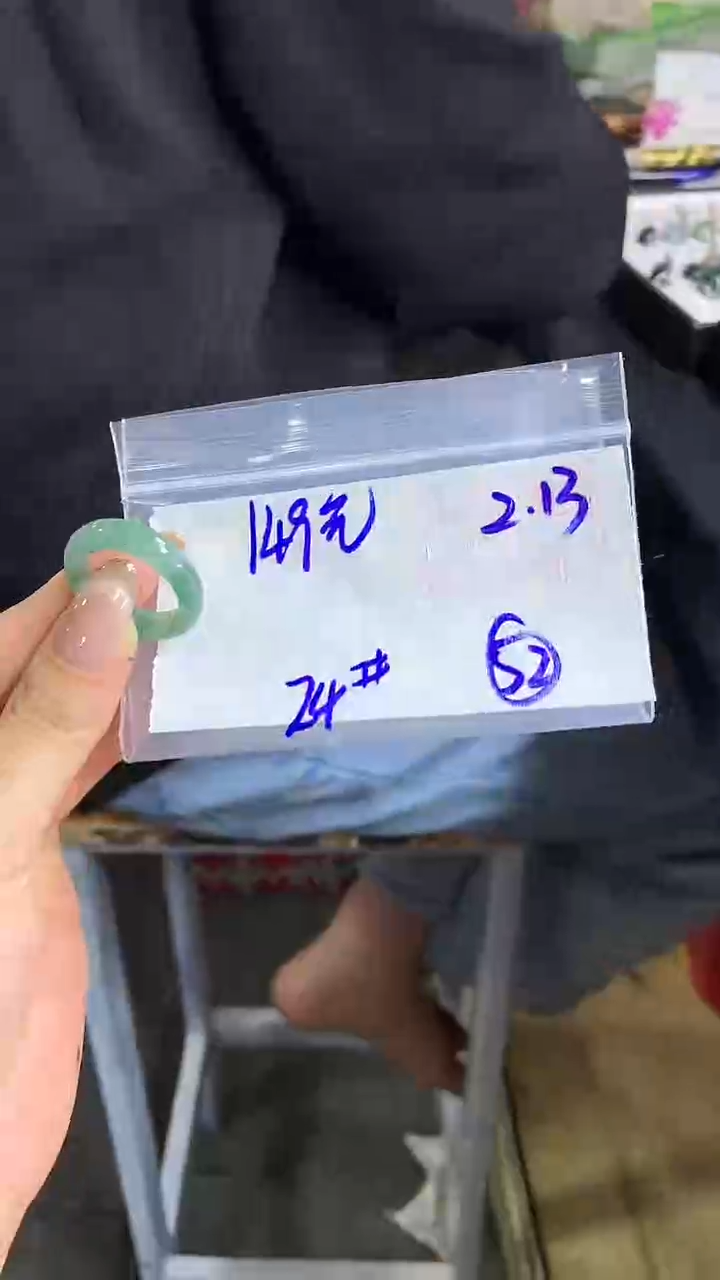 149元 2.13
24# 52